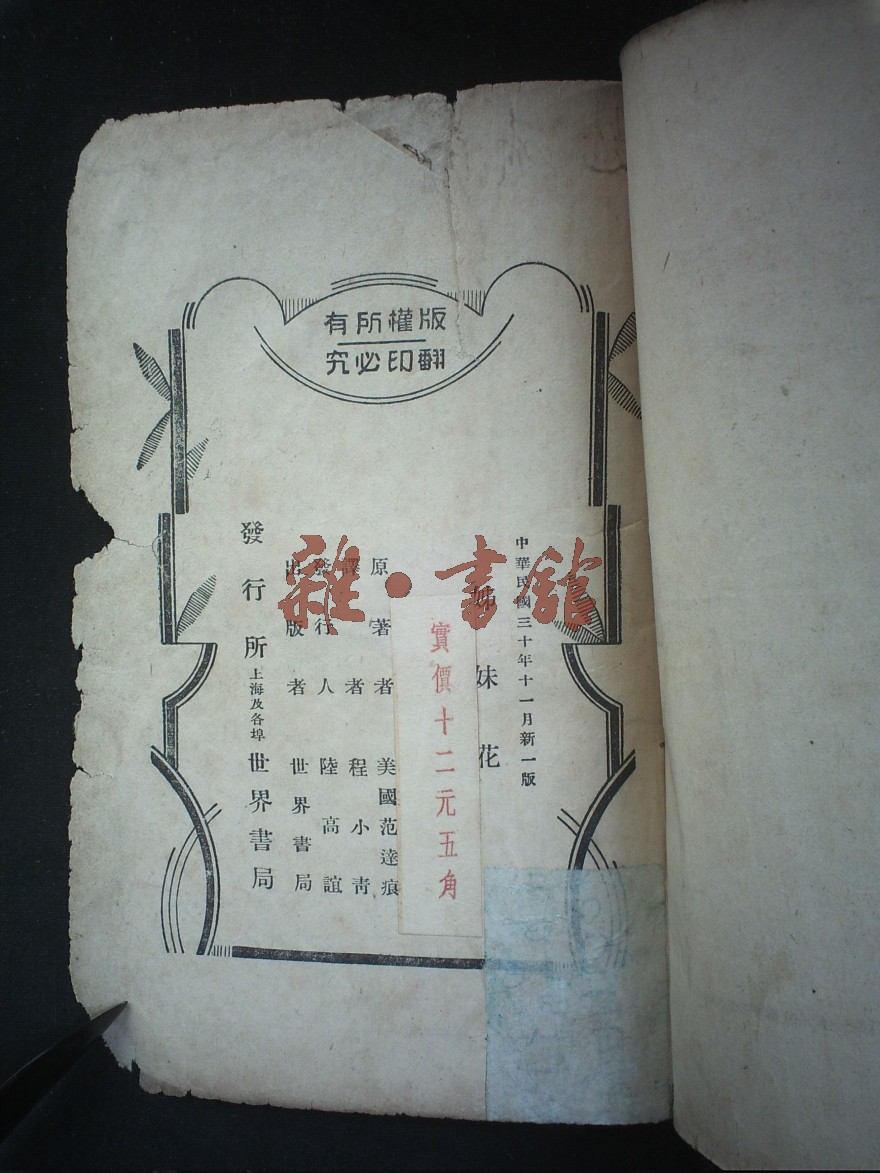 版權所有
翻印必究
中華民國三十年十一月新一版
姊妹花
實價十二元五角
原著者 美國范達痕
譯者 程小青
發行人 陸高誼
出版者 世界書局
發行所 上海及各埠 世界書局
雜·書館